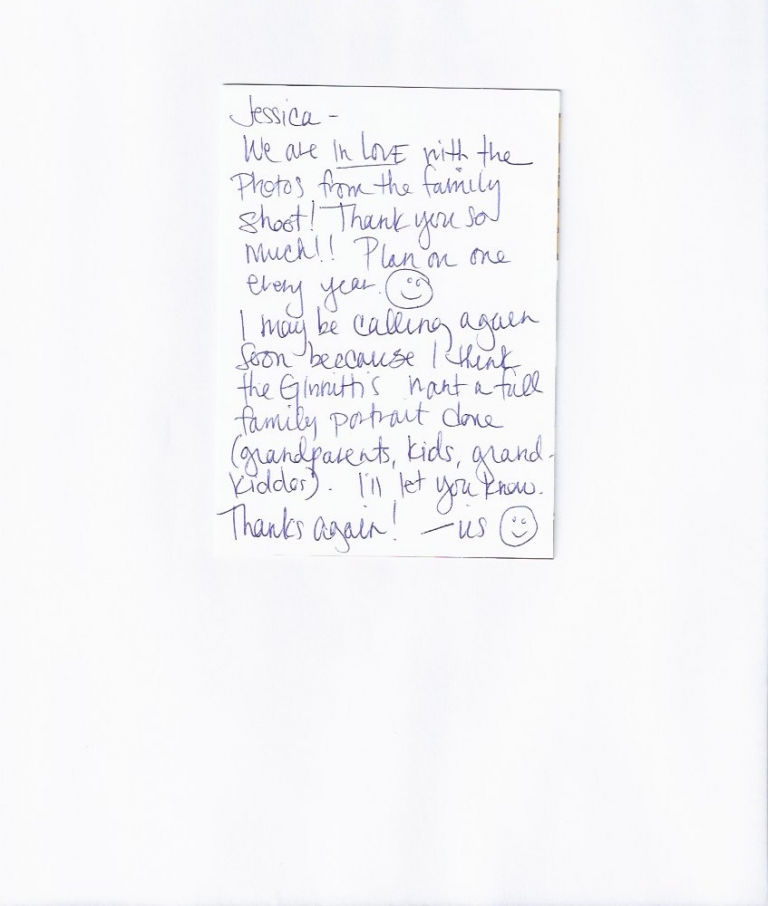 Jessica -
We are IN LOVE with the
Photos from the family
shoot! Thank you so
much!! Plan on one
every year. ☺
I may be calling again
soon beecause I think
the want a full
family portrait done
(grandparents, kids, grand-
kiddos). I'll let you know.
Thanks again! - us ☺